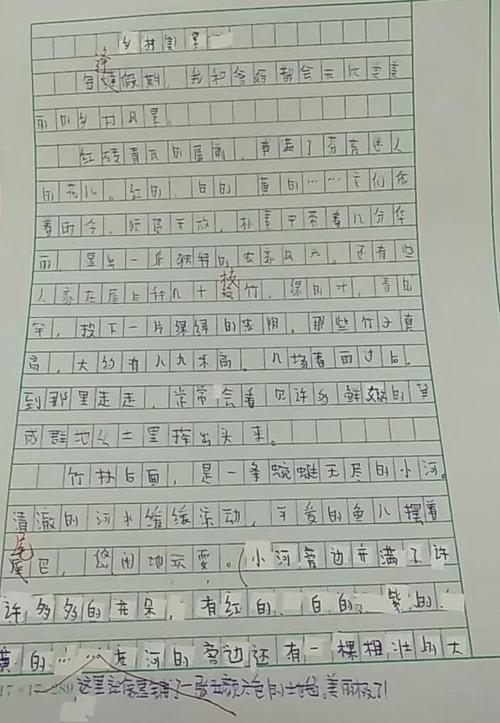 乡村美景
逢
每逢假期，我和爸妈都会去比完美
丽的乡村风景。
红砖青瓦的屋前，种满了芬芳迷人
的花儿。红的、白的、黄的……它们依
着时令，顺序开放，朴素中带着几分华
丽，显出一派独特的农家风光。还有些
枝
人家在屋后种几十枝竹，绿的叶，青的
竿，投下一片绿绿的浓阴。那些竹子真
高，大约有八九米高。几场春雨过后，
到那里走走，常常会看见许多鲜嫩的笋
成群地从土里探出头来。
竹林后面，是一条蜿蜒无尽的小河。
清澈的河水缓缓流动，可爱的鱼儿摆着
尾
尾巴，悠闲地玩耍。(小河旁边开满了许
许多多的花朵，有红的、白的、紫的、
黄的……在河的旁边还有一棵粗壮的大
17×17=289
这里这像是铺了一张五颜六色的地毯，美丽极了！